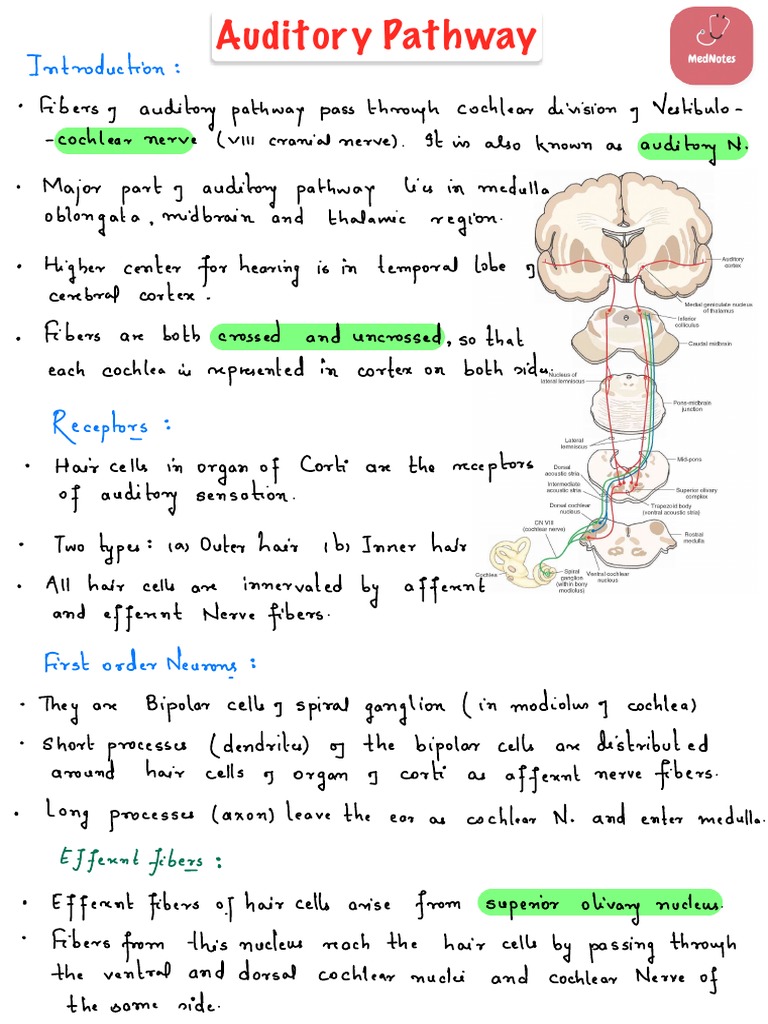 Auditory Pathway
MedNotes
Introduction :
• Fibers of auditory pathway pass through cochlear division of Vestibulo-
-cochlear nerve (VIII cranial nerve). It is also known as auditory N.
• Major part of auditory pathway lies in medulla
oblongata, midbrain and thalamic region.
• Higher center for hearing is in temporal lobe of
cerebral cortex.
• Fibers are both crossed and uncrossed, so that
each cochlea is represented in cortex on both side.
Receptors :
• Hair cells in organ of Corti are the receptors
of auditory sensation.
• Two types: (a) Outer hair (b) Inner hair
• All hair cells are innervated by afferent
and efferent Nerve fibers.
Auditory
cortex
Medial geniculate nucleus
of thalamus
Inferior
colliculus
Caudal midbrain
Nucleus of
lateral lemniscus
Pons-midbrain
junction
Lateral
lemniscus
Mid-pons
Dorsal
acoustic stria
Intermediate
acoustic stria
Superior olivary
complex
Dorsal cochlear
nucleus
Trapezoid body
(ventral acoustic stria)
CN VIII
(cochlear nerve)
Rostral
medulla
Cochlea
Spiral
ganglion
(within bony
modiolus)
Ventral cochlear
nucleus
First order Neurons :
• They are Bipolar cells of spiral ganglion (in modiolus of cochlea)
• Short processes (dendrites) of the bipolar cells are distributed
around hair cells of organ of corti as afferent nerve fibers.
• Long processes (axon) leave the ear as cochlear N. and enter medulla.
Efferent fibers :
• Efferent fibers of hair cells arise from superior olivary nucleus.
• Fibers from this nucleus reach the hair cells by passing through
the ventral and dorsal cochlear nuclei and cochlear Nerve of
the same side.